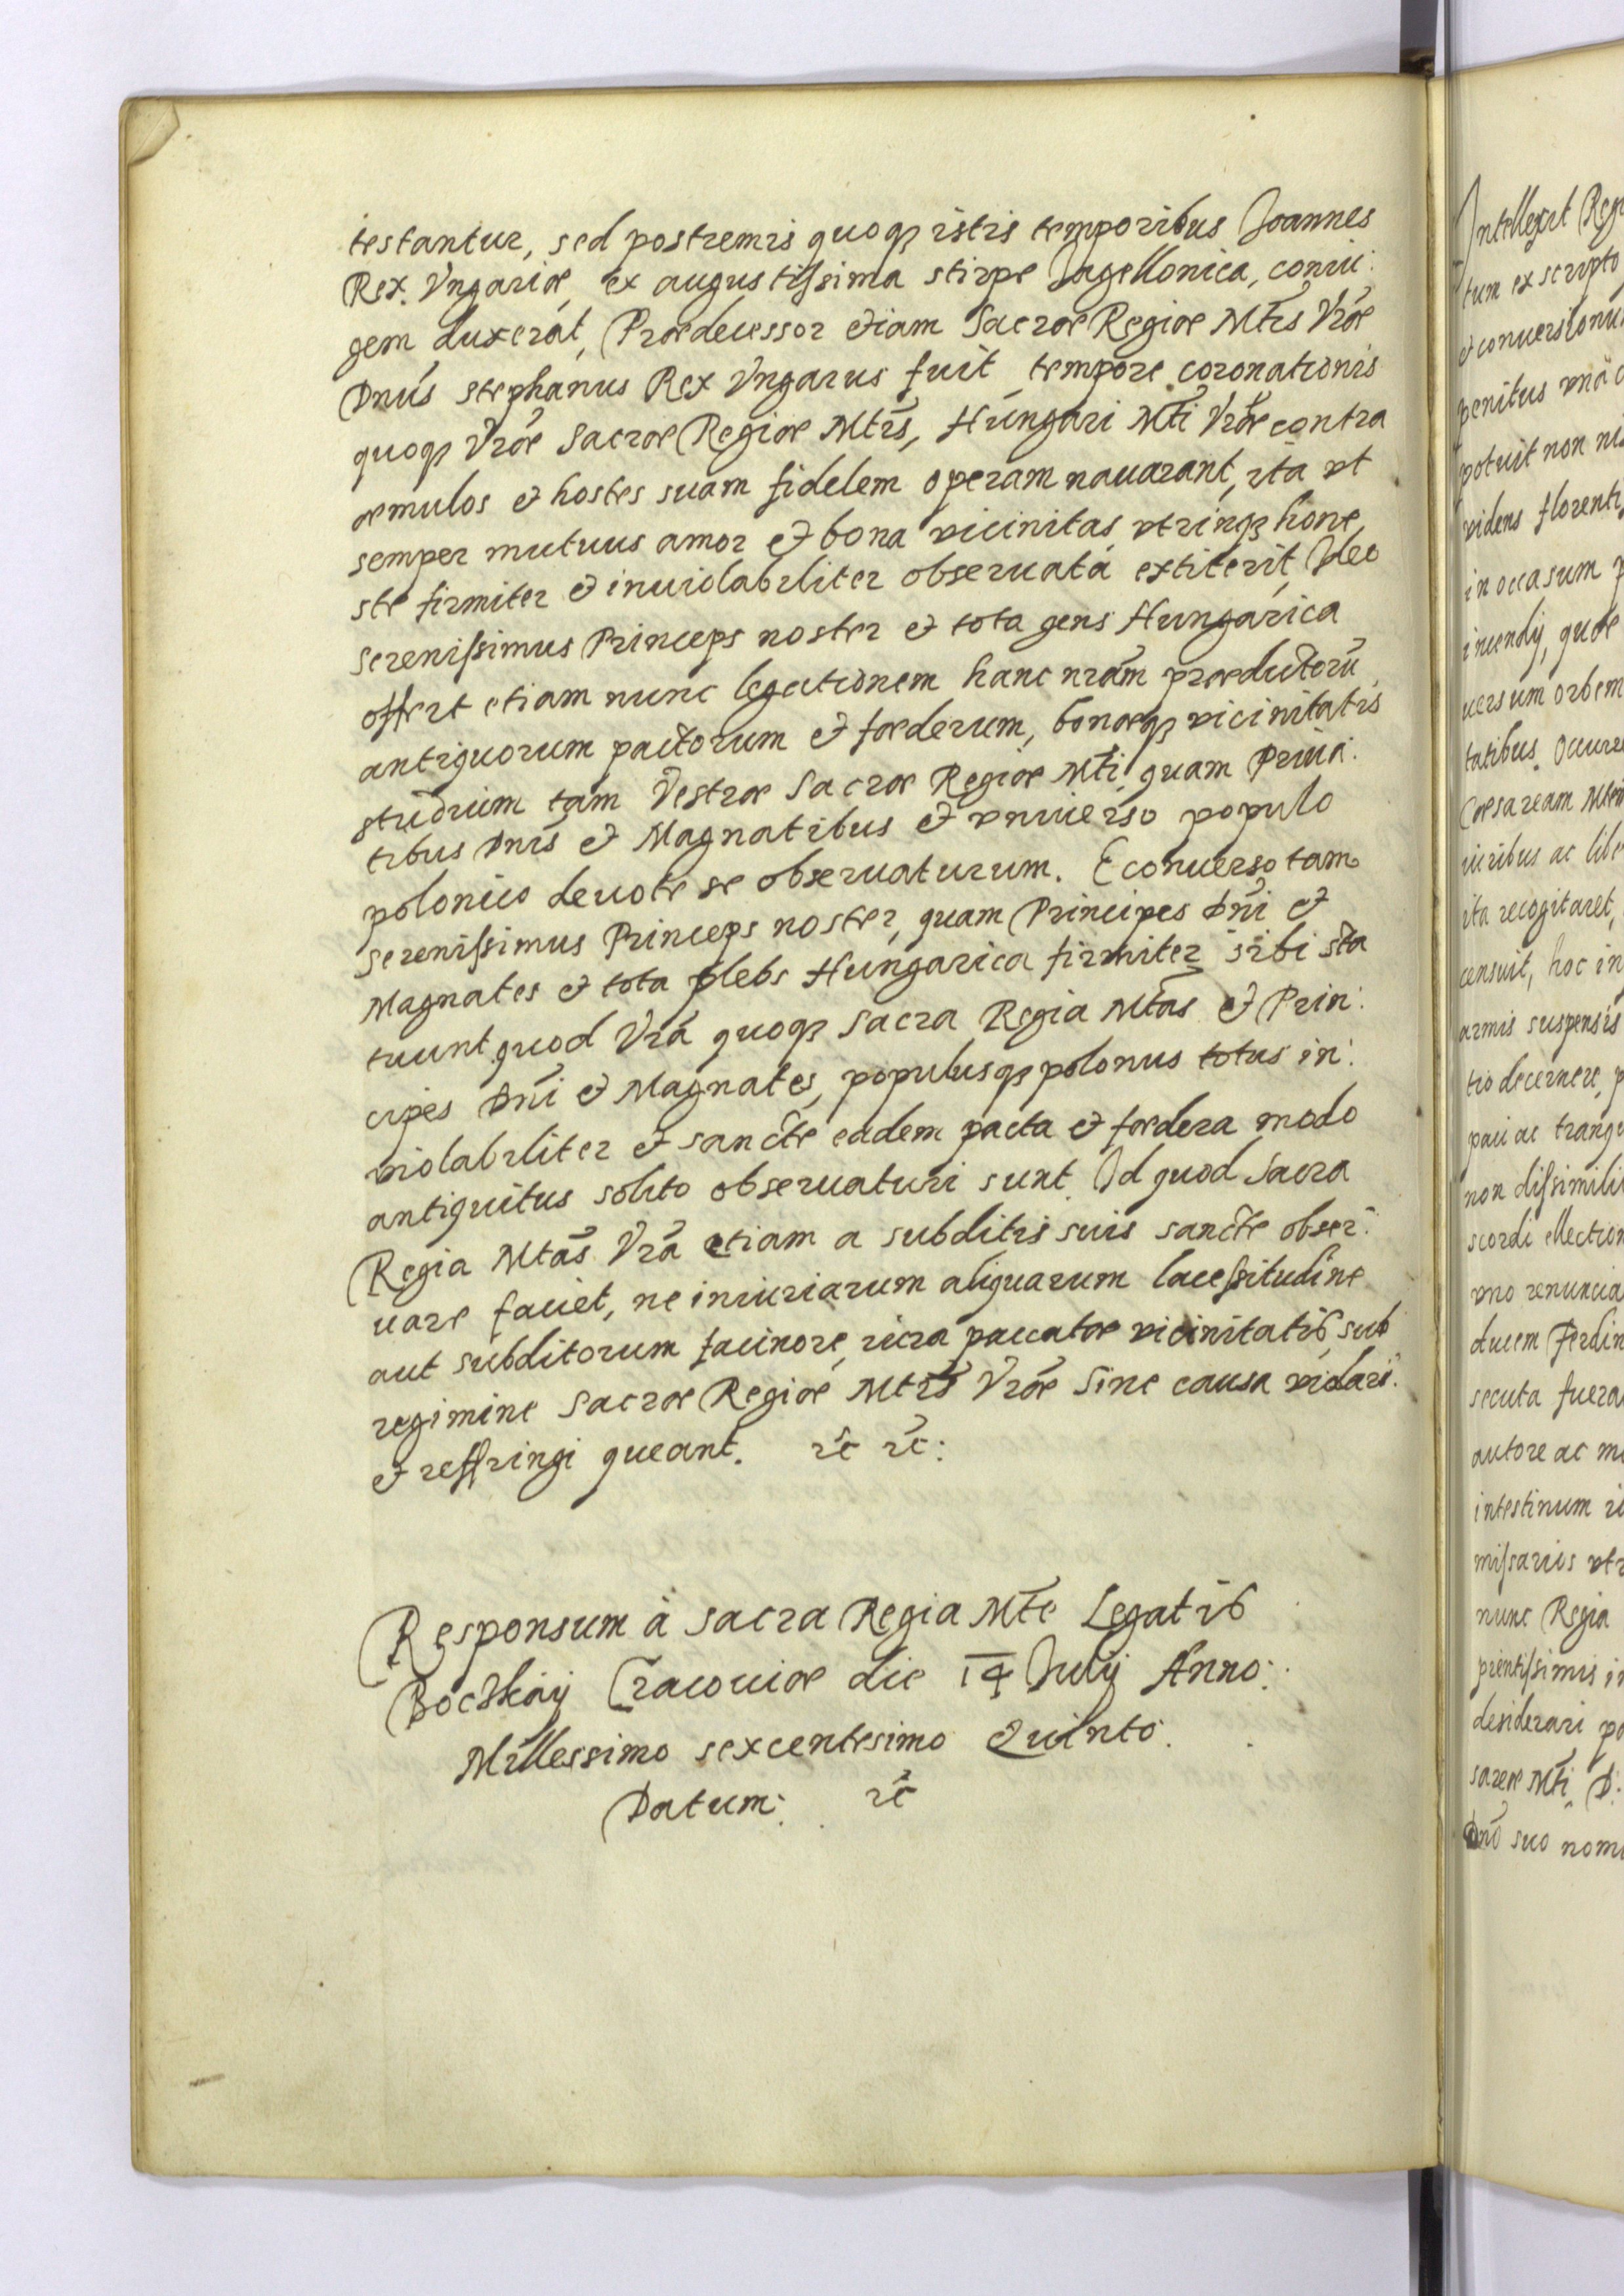 testantur, sed postremis quoqȝ istis temporibus Joannes
Rex Vngariæ, ex augustissima stirpe Jagellonica, coniu:
gem duxerat, Prædecessor etiam Sacræ Regiæ Mtis Vræ
Dnus Stephanus Rex Vngarus fuit, tempore coronationis
quoqȝ Vræ Sacræ Regiæ Mtis, Hungari Mti Vræ contra
æmulos et hostes suam fidelem operam nauarant, ita vt
semper mutuus amor et bona vicinitas vtrinqȝ hone,
ste firmiter et inuiolabiliter obseruata extiterit, Ideo
serenissimus Princeps noster et tota gens Hungarica
offert etiam nunc legationem hanc nram prædictoru
antiquorum pactorum et fæderum, bonæqȝ vicinitatis
studium tam Vestræ Sacræ Regiæ Mti, quam Princi:
tibus Dnis et Magnatibus et vniuerso populo
polonico deuote se obseruaturum. E conuerso tam
serenissimus Princeps noster, quam Principes Dni et
Magnates et tota plebs Hungarica firmiter sibi sta
tuunt quod Vra quoqȝ Sacra Regia Mtas et Prin:
cipes Dni et Magnates, populusqȝ polonus totus in:
violabiliter et sancte eadem pacta et fædera modo
antiquitus solito obseruaturi sunt. Id quod Sacra
Regia Mtas Vra etiam a subditis suis sancte obser:
uare faciet, ne iniuriarum aliquarum lacessitudine
aut subditorum facinore, iura paccatæ vicinitatis, sub
regimine Sacræ Regiæ Mtis Vræ sine causa violari
et reffringi queant. etc etc:
Responsum à Sacra Regia Mte Legatis
Bocskaij Cracouiæ die 14 Julij Anno:
Millessimo sexcentesimo Quinto.
Datum: etc
Intellexit
tum ex scripto
et conuersionu
penitus vnà
potuit non
videns florenti
in occasum
incendij, quæ
uersum orbem
tatibus
Cæsaream Mtem
uiribus ac
ita recogitaret,
censuit, hoc in
armis suspensis
tio decernere,
paci ac
non dissimili
scordi
vno
ducem
secuta
autore ac
intestinum
missarios
nunc Regia
desiderari
sareæ Mti
Dno suo